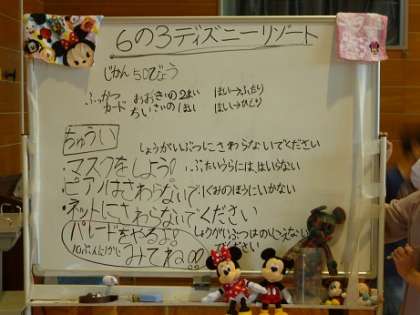 6の3ディズニーリゾート
じかん 50びょう
ふっかつ おおきいの2まい はい→ふたり
カード ちいさいの1まい はい→ひとり
ちゅうい しょうがいぶつにさわらないでください
・マスクをしよう! ぶたいうらには、はいらない
・ピアノはさわらないで くみのほうにいかない
・ネットにさわらないでください
パレードをやるよ!! しょうがいぶつはのりこえない
10ぷんに1かい みてね!! でください